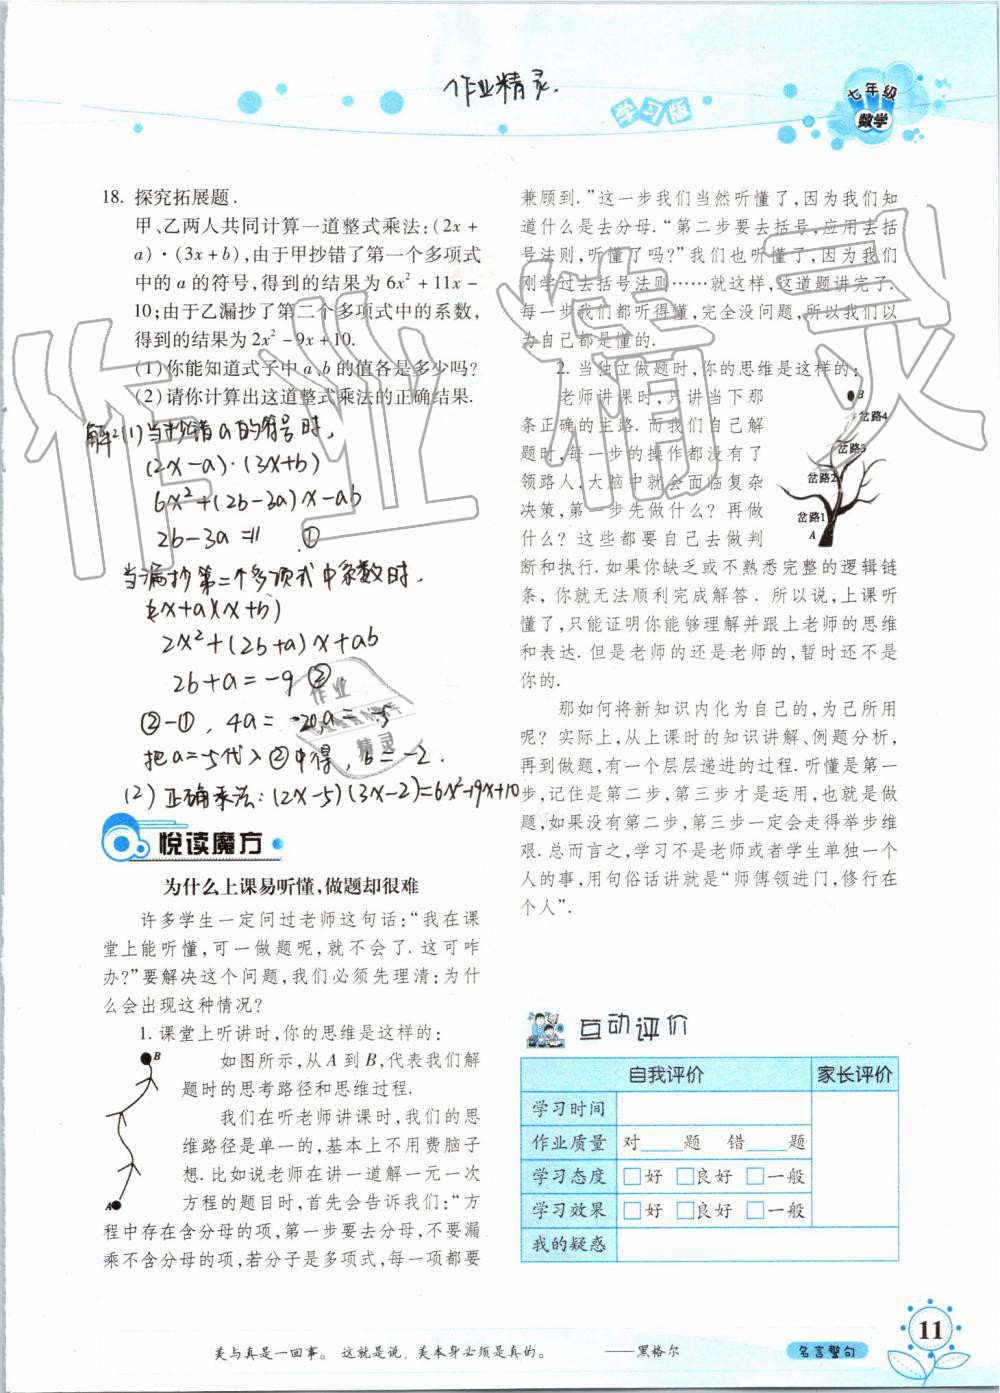 作业精灵.
学习版
七年级
数学
18. 探究拓展题.
甲、乙两人共同计算一道整式乘法:(2x+
a)·(3x+b),由于甲抄错了第一个多项式
中的a的符号,得到的结果为6x²+11x-
10;由于乙漏抄了第二个多项式中的系数,
得到的结果为2x²-9x+10.
(1)你能知道式子中a、b的值各是多少吗?
(2)请你计算出这道整式乘法的正确结果.
(1)当抄错a的符号时,
(2x-a)·(3x+b)
6x²+(2b-3a)x-ab
2b-3a=11 ①
当漏抄第二个多项式中系数时.
(2x+a)(x+b)
2x²+(2b+a)x+ab
2b+a=-9 ②
②-①, 4a=-20 a=-5
把a=-5代入②中得, b=-2.
(2)正确乘法:(2x-5)(3x-2)=6x²-19x+10
悦读魔方
为什么上课易听懂,做题却很难
许多学生一定问过老师这句话:“我在课
堂上能听懂,可一做题呢,就不会了.这可咋
办?”要解决这个问题,我们必须先理清:为什
么会出现这种情况?
1. 课堂上听讲时,你的思维是这样的:
B
A
如图所示,从A到B,代表我们解
题时的思考路径和思维过程.
我们在听老师讲课时,我们的思
维路径是单一的,基本上不用费脑子
想.比如说老师在讲一道解一元一次
方程的题目时,首先会告诉我们:“方
程中存在含分母的项,第一步要去分母,不要漏
乘不含分母的项,若分子是多项式,每一项都要
兼顾到.”这一步我们当然听懂了,因为我们知
道什么是去分母.“第二步要去括号,应用去括
号法则,听懂了吗?”我们也听懂了,因为我们
刚学过去括号法则……就这样,这道题讲完了.
每一步我们都听得懂,完全没问题,所以我们以
为自己都是懂的.
2. 当独立做题时,你的思维是这样的:
老师讲课时,只讲当下那
条正确的主路.而我们自己解
题时,每一步的操作都没有了
领路人,大脑中就会面临复杂
决策,第一步先做什么?再做
什么?这些都要自己去做判
B
岔路4
岔路3
岔路2
岔路1
A
断和执行.如果你缺乏或不熟悉完整的逻辑链
条,你就无法顺利完成解答.所以说,上课听
懂了,只能证明你能够理解并跟上老师的思维
和表达.但是老师的还是老师的,暂时还不是
你的.
那如何将新知识内化为自己的,为己所用
呢?实际上,从上课时的知识讲解、例题分析,
再到做题,有一个层层递进的过程.听懂是第一
步,记住是第二步,第三步才是运用,也就是做
题,如果没有第二步,第三步一定会走得举步维
艰.总而言之,学习不是老师或者学生单独一个
人的事,用句俗话讲就是“师傅领进门,修行在
个人”.
互动评价
自我评价 家长评价
学习时间
作业质量 对____题 错____题
学习态度 □好 □良好 □一般
学习效果 □好 □良好 □一般
我的疑惑
美与真是一回事。这就是说,美本身必须是真的。 ——黑格尔
名言警句
11
作业精灵
作业
精灵